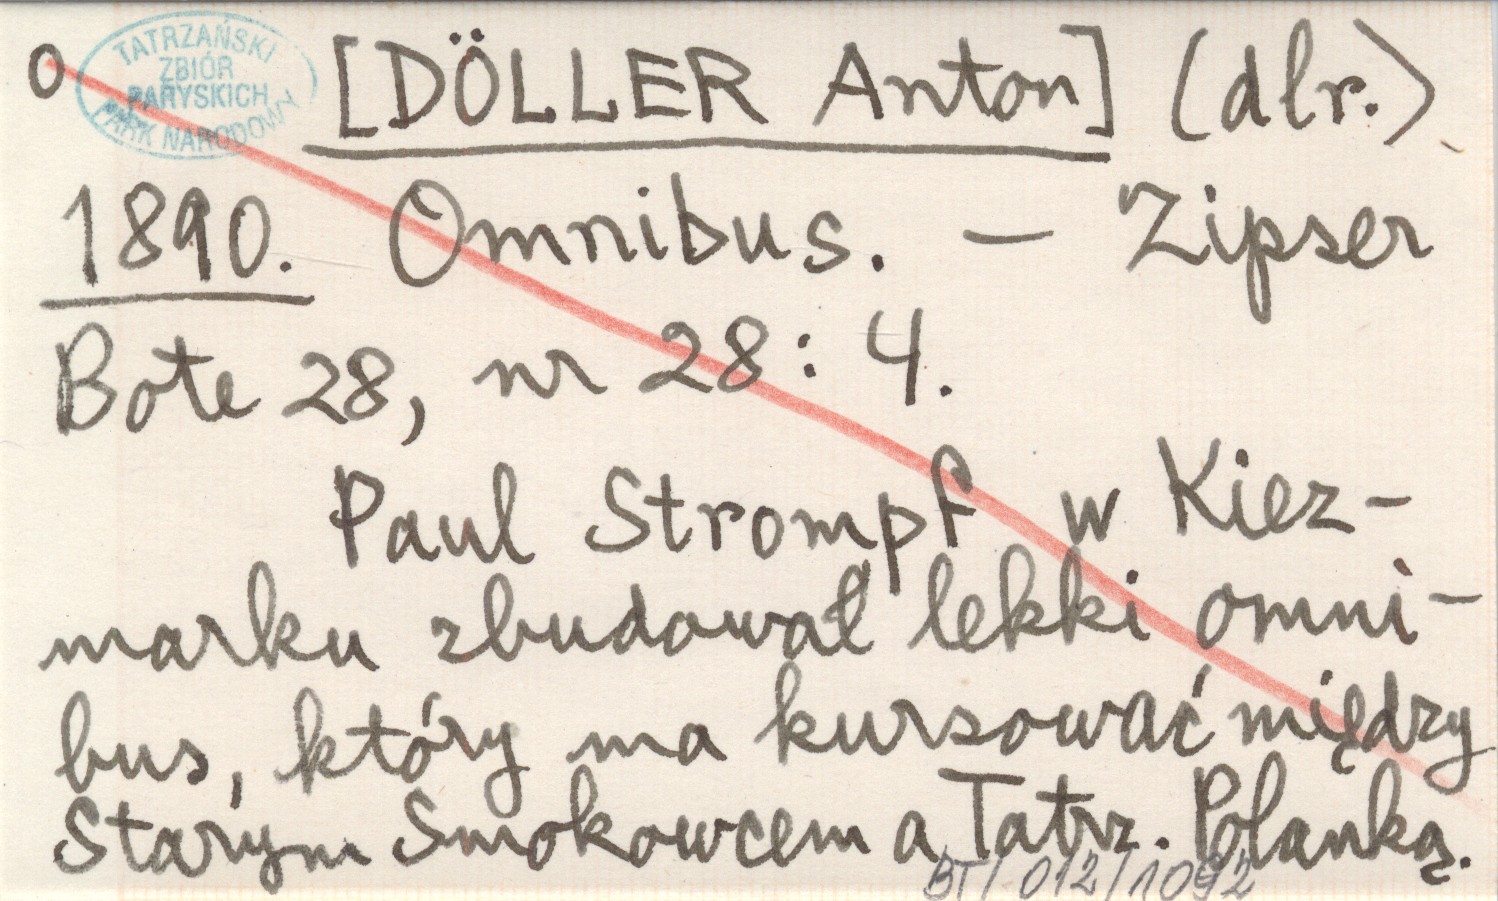 o TATRZAŃSKI ZBIÓR PARYSKICH PARK NARODOWY
[DÖLLER Anton] (dlr.)
1890. Omnibus. — Zipser
Bote 28, nr 28: 4.
Paul Strompf w Kiez-
marku zbudował lekki omni-
bus, który ma kursować między
Starym Smokowcem a Tatrz. Polanką.
BT/012/1092